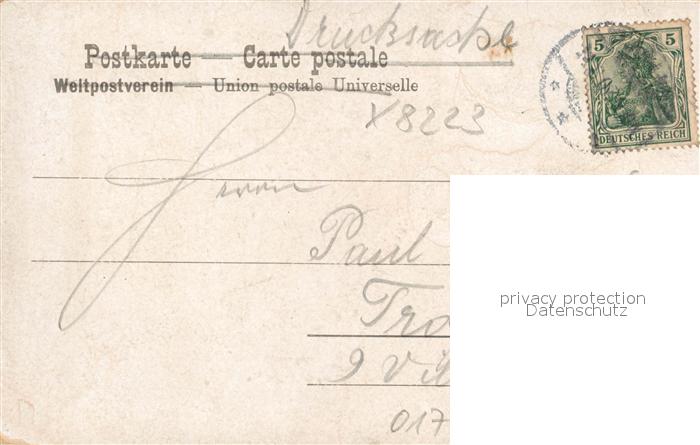 Drucksache
Postkarte — Carte postale
Weltpostverein — Union postale Universelle
5 5
DEUTSCHES REICH
X8223
Herrn
Paul
privacy protection
Datenschutz
017